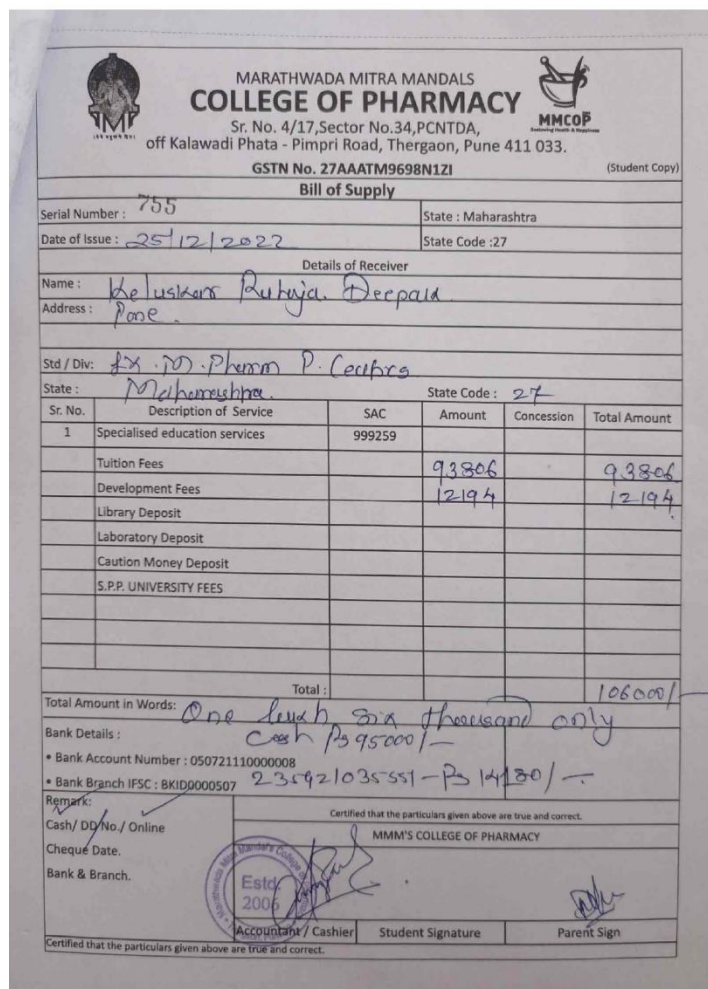 MARATHWADA MITRA MANDALS
COLLEGE OF PHARMACY
MMCOP
Sr. No. 4/17,Sector No.34,PCNTDA,
off Kalawadi Phata - Pimpri Road, Thergaon, Pune 411 033.
GSTN No. 27AAATM9698N1ZI (Student Copy)
Bill of Supply
Serial Number : 755 State : Maharashtra
Date of Issue : 25/12/2022 State Code :27
Details of Receiver
Name : Keluskar Rutuja Deepak
Address :
Std / Div: M. Pharm
State : State Code : 27
Sr. No. Description of Service SAC Amount Concession Total Amount
1 Specialised education services 999259
Tuition Fees 93806 93806
Development Fees 12194 12194
Library Deposit
Laboratory Deposit
Caution Money Deposit
S.P.P. UNIVERSITY FEES
Total : 106000/-
Total Amount in Words: One lakh six thousand only
Bank Details : Cash Rs 95000/-
• Bank Account Number : 050721110000008
• Bank Branch IFSC : BKID0000507 235921035551 - Rs
Remark:
Certified that the particulars given above are true and correct.
Cash/ DD No./ Online MMM'S COLLEGE OF PHARMACY
Cheque Date.
Bank & Branch.
Estd.
2006
Accountant / Cashier Student Signature Parent Sign
Certified that the particulars given above are true and correct.